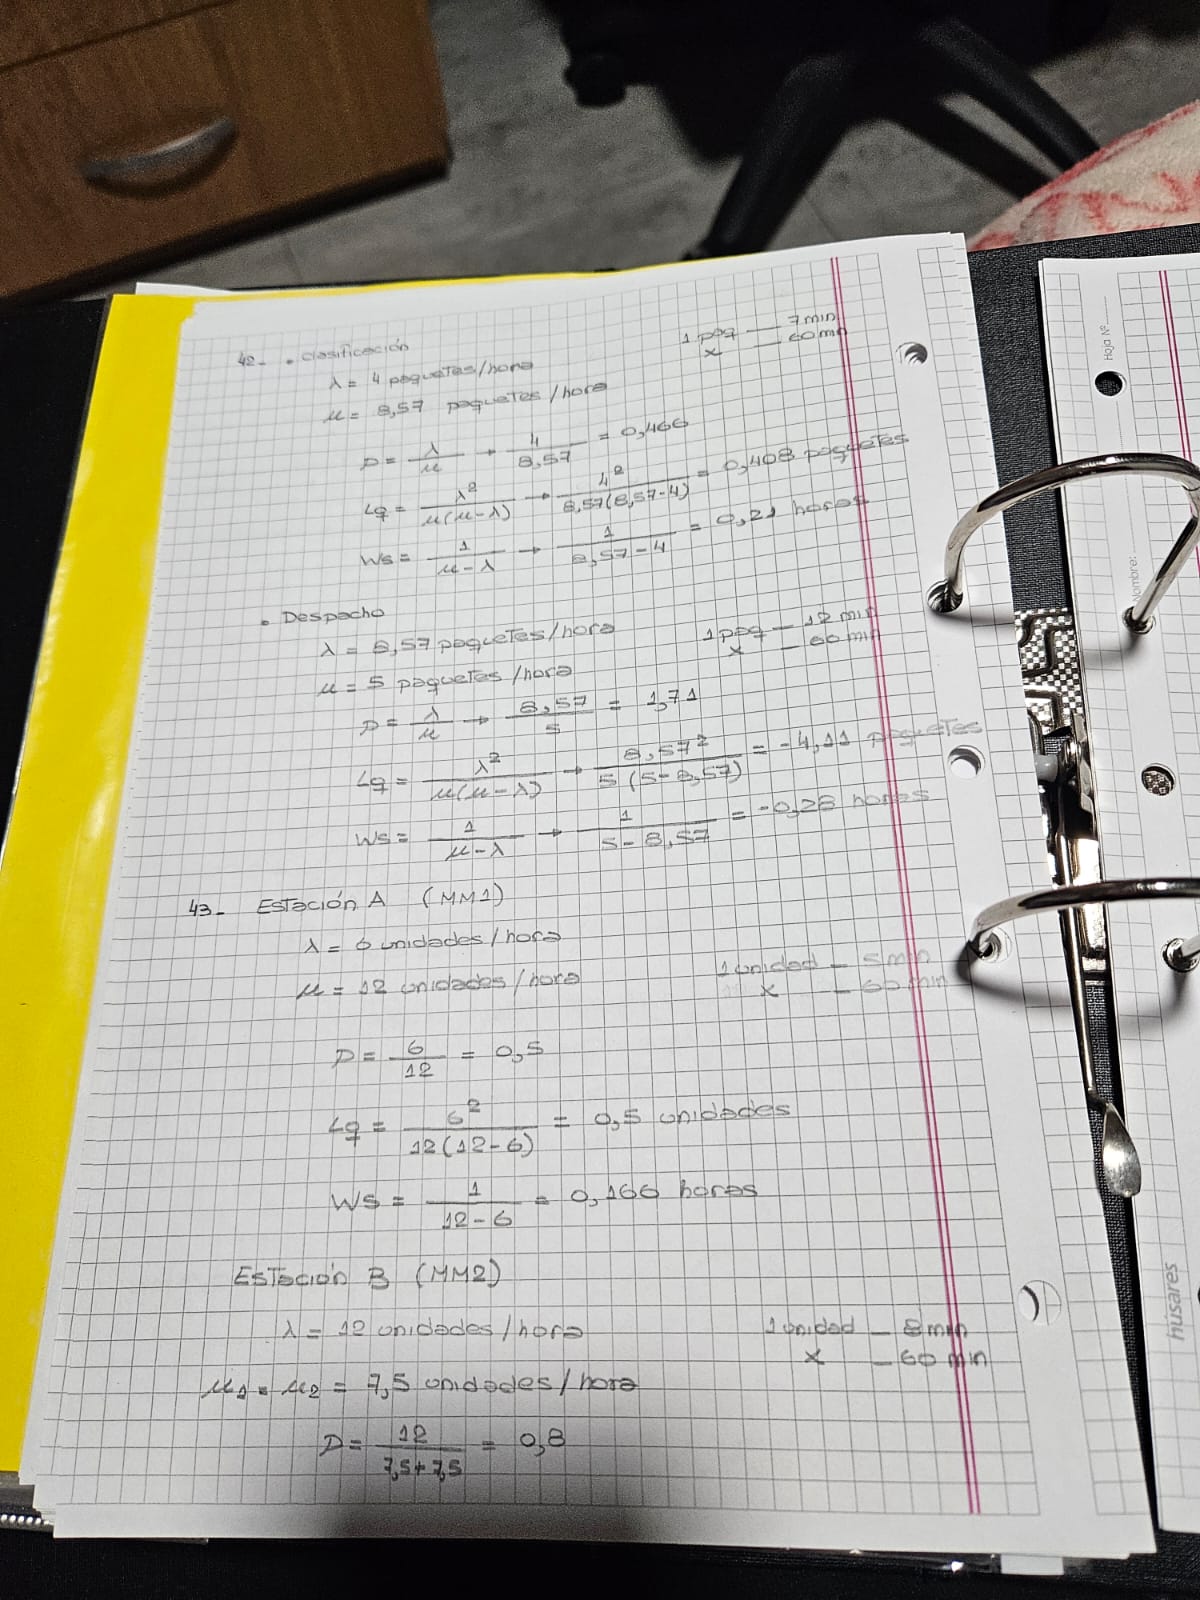 42- • Clasificación
1 paq — 7 min
x — 60 min
λ = 4 paquetes/hora
μ = 8,57 paquetes/hora
P = λ/μ → 4/8,57 = 0,466
Lq = λ²/μ(μ-λ) → 4²/8,57(8,57-4) = 0,408 paquetes
Ws = 1/μ-λ → 1/8,57-4 = 0,21 horas
• Despacho
λ = 8,57 paquetes/hora
1 paq — 12 min
x — 60 min
μ = 5 paquetes/hora
P = λ/μ → 8,57/5 = 1,71
Lq = λ²/μ(μ-λ) → 8,57²/5(5-8,57) = -4,11 paquetes
Ws = 1/μ-λ → 1/5-8,57 = -0,28 horas
43- Estación A (MM1)
λ = 6 unidades/hora
μ = 12 unidades/hora
1 unidad — 5 min
x — 60 min
P = 6/12 = 0,5
Lq = 6²/12(12-6) = 0,5 unidades
Ws = 1/12-6 = 0,166 horas
Estación B (MM2)
λ = 12 unidades/hora
1 unidad — 8 min
x — 60 min
μ1 = μ2 = 7,5 unidades/hora
P = 12/7,5+7,5 = 0,8
Hoja Nº
Nombre:
húsares